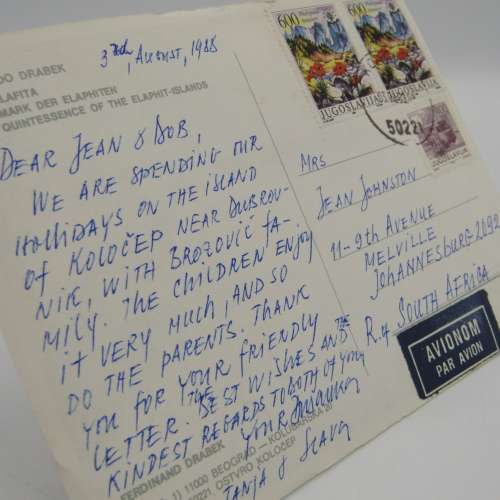 DO DRABEK
LAFITA
MARK DER ELAPHITEN
QUINTESSENCE OF THE ELAPHIT-ISLANDS
AUGUST, 1988
DEAR JEAN & BOB,
WE ARE SPENDING OUR
HOLLIDAYS ON THE ISLAND
OF KOLOČEP NEAR DUBROV-
NIK, WITH BROZOVIĆ FA-
MILY. THE CHILDREN ENJOY
IT VERY MUCH, AND SO
DO THE PARENTS. THANK
YOU FOR YOUR FRIENDLY
LETTER. THE BEST WISHES AND THE
KINDEST REGARDS TO BOTH OF YOU
YOUR
TANJA & SLAVEN
FERDINAND DRABEK
1) 11000 BEOGRAD – KOLUBARSKA
50221 OSTVRO KOLOČEP
600
JUGOSLAVIJA
600
JUGOSLAVIJA
50221
JUGOSLAVIJA
MRS
JEAN JOHNSTON
11-9th AVENUE
MELVILLE
JOHANNESBURG 2092
R. of SOUTH AFRICA
AVIONOM
PAR AVION